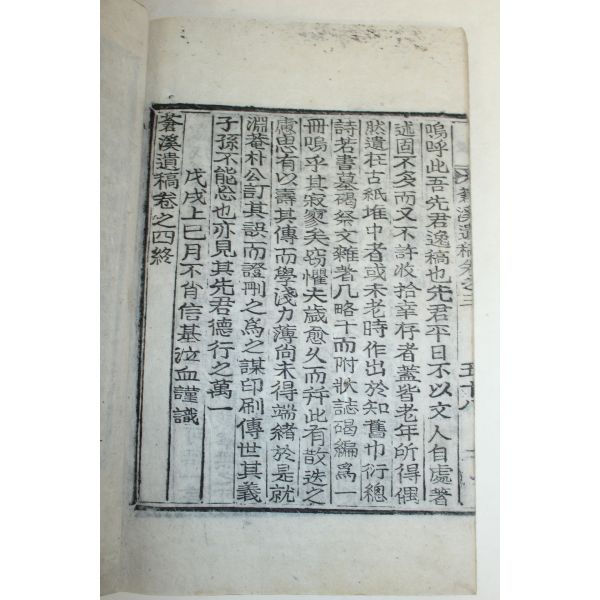 蒼溪遺稿卷之三
五十八
嗚呼此吾先君逸稿也先君平日不以文人自處著
述固不多而又不許收拾幸存者蓋皆老年所得偶
然遺在古紙堆中者或未老時作出於知舊巾衍總
詩若書墓碣祭文雜著凡略干而附狀誌碣編爲一
冊嗚乎其寂寥矣窃懼夫歲愈久而并此有散迭之
慮思有以壽其傳而學淺力薄尚未得端緒於是就
淵菴朴公訂其誤而證刪之爲之謀印刷傳世其義
子孫不能忘也亦見其先君德行之萬一
戊戌上巳月不肖信基泣血謹識
蒼溪遺稿卷之四終